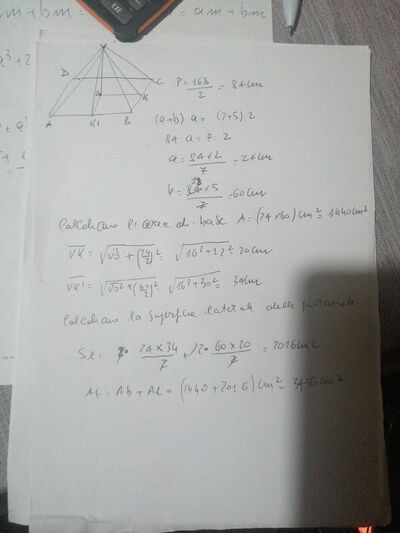 m + bm = am + bm
V
D
C
O
K
A
K1
B
P = 168/2 = 84cm
(a+b) : a = (2+5) : 2
84 : a = 7 : 2
a = 84×2/7 = 24cm
b = 84×5/7 = 60cm
Calcoliamo l'area di base A = (24×60) cm² = 1440cm²
VK = √(VO² + (24/2)²) = √(16² + 12²) = 20cm
VK1 = √(VO² + (60/2)²) = √(16² + 30²) = 34cm
Calcoliamo la superficie laterale della piramide
Sl = 2 · 24×34/2 + 2 · 60×20/2 = 2016cm²
At = Ab + Al = (1440 + 2016) cm² = 3456cm²